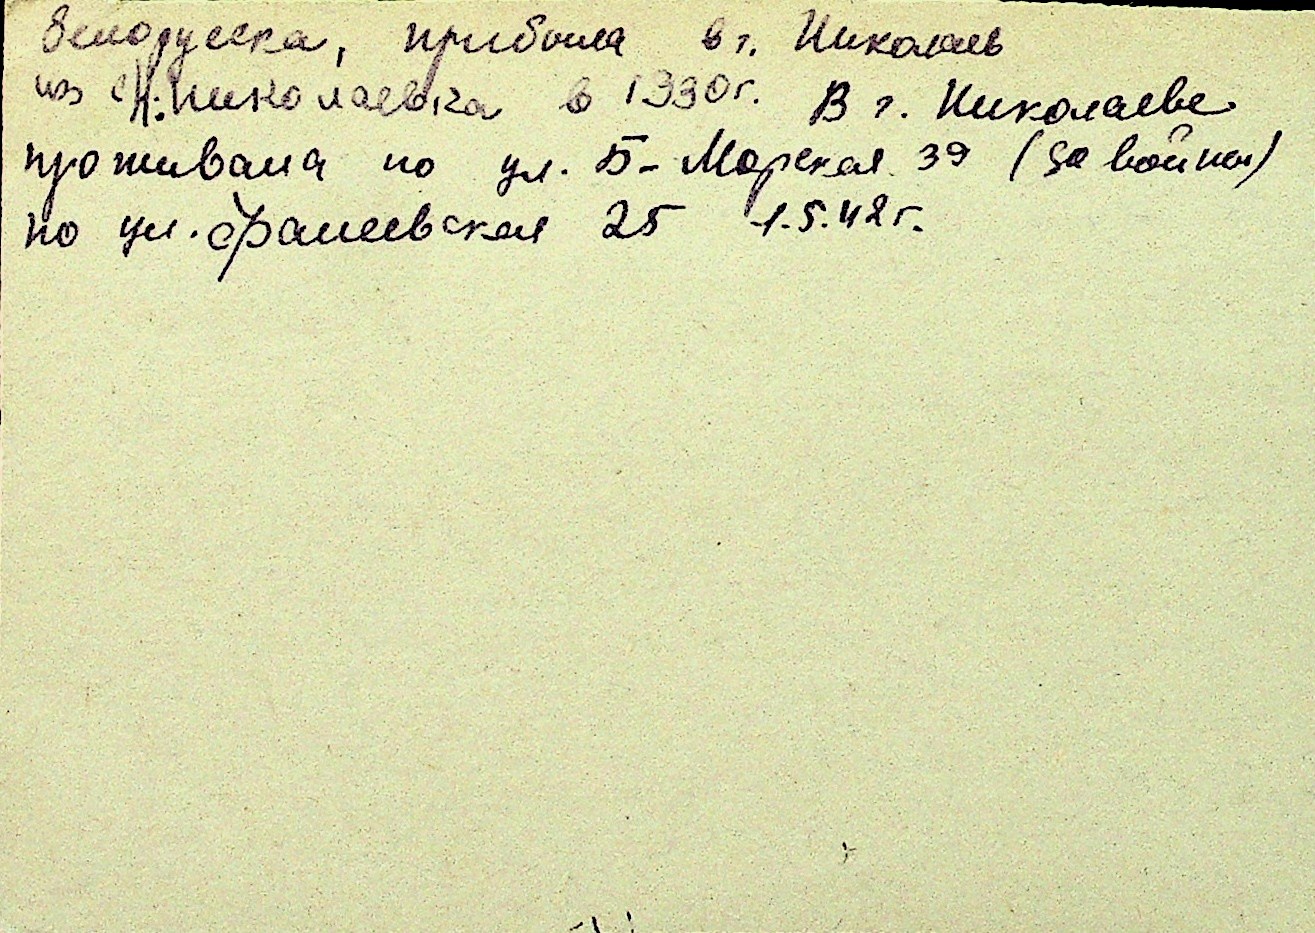 белорусска, прибыла в г. Николаев
из Н. Николаевка в 1930г. В г. Николаеве
проживала по ул. Б-Морская 39 (до войны)
по ул. Фалеевская 25 1.5.42г.